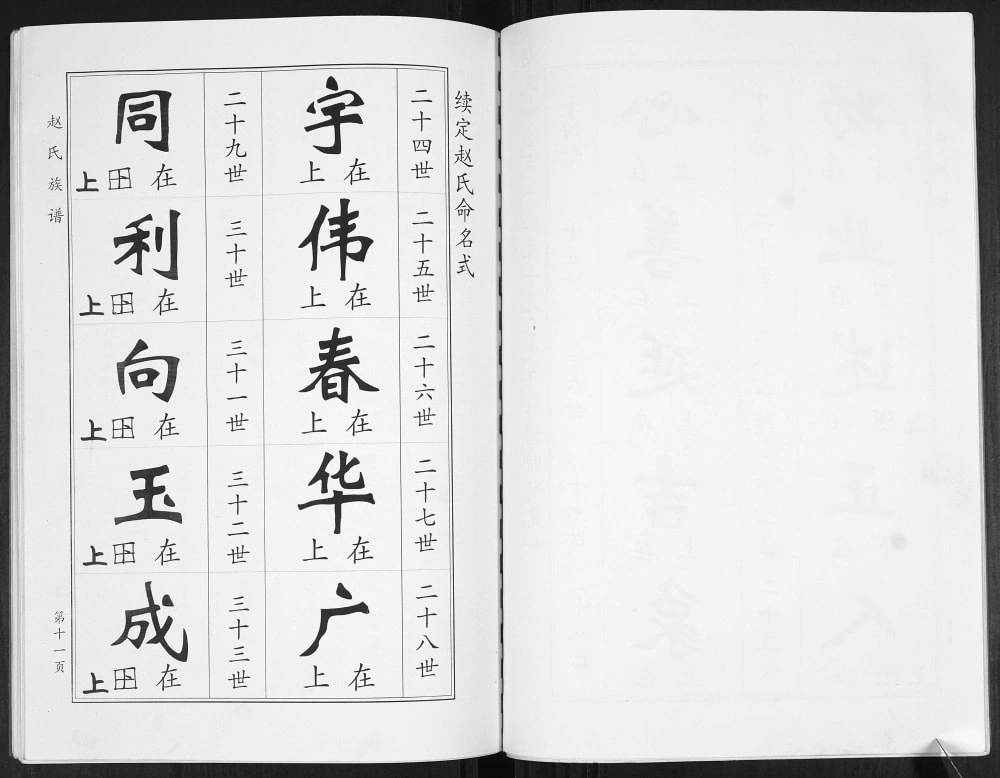 续定赵氏命名式
二十四世
宇
在上
二十五世
伟
在上
二十六世
春
在上
二十七世
华
在上
二十八世
广
在上
二十九世
同
在上
三十世
利
在上
三十一世
向
在上
三十二世
玉
在上
三十三世
成
在上
赵氏族谱
第十一页